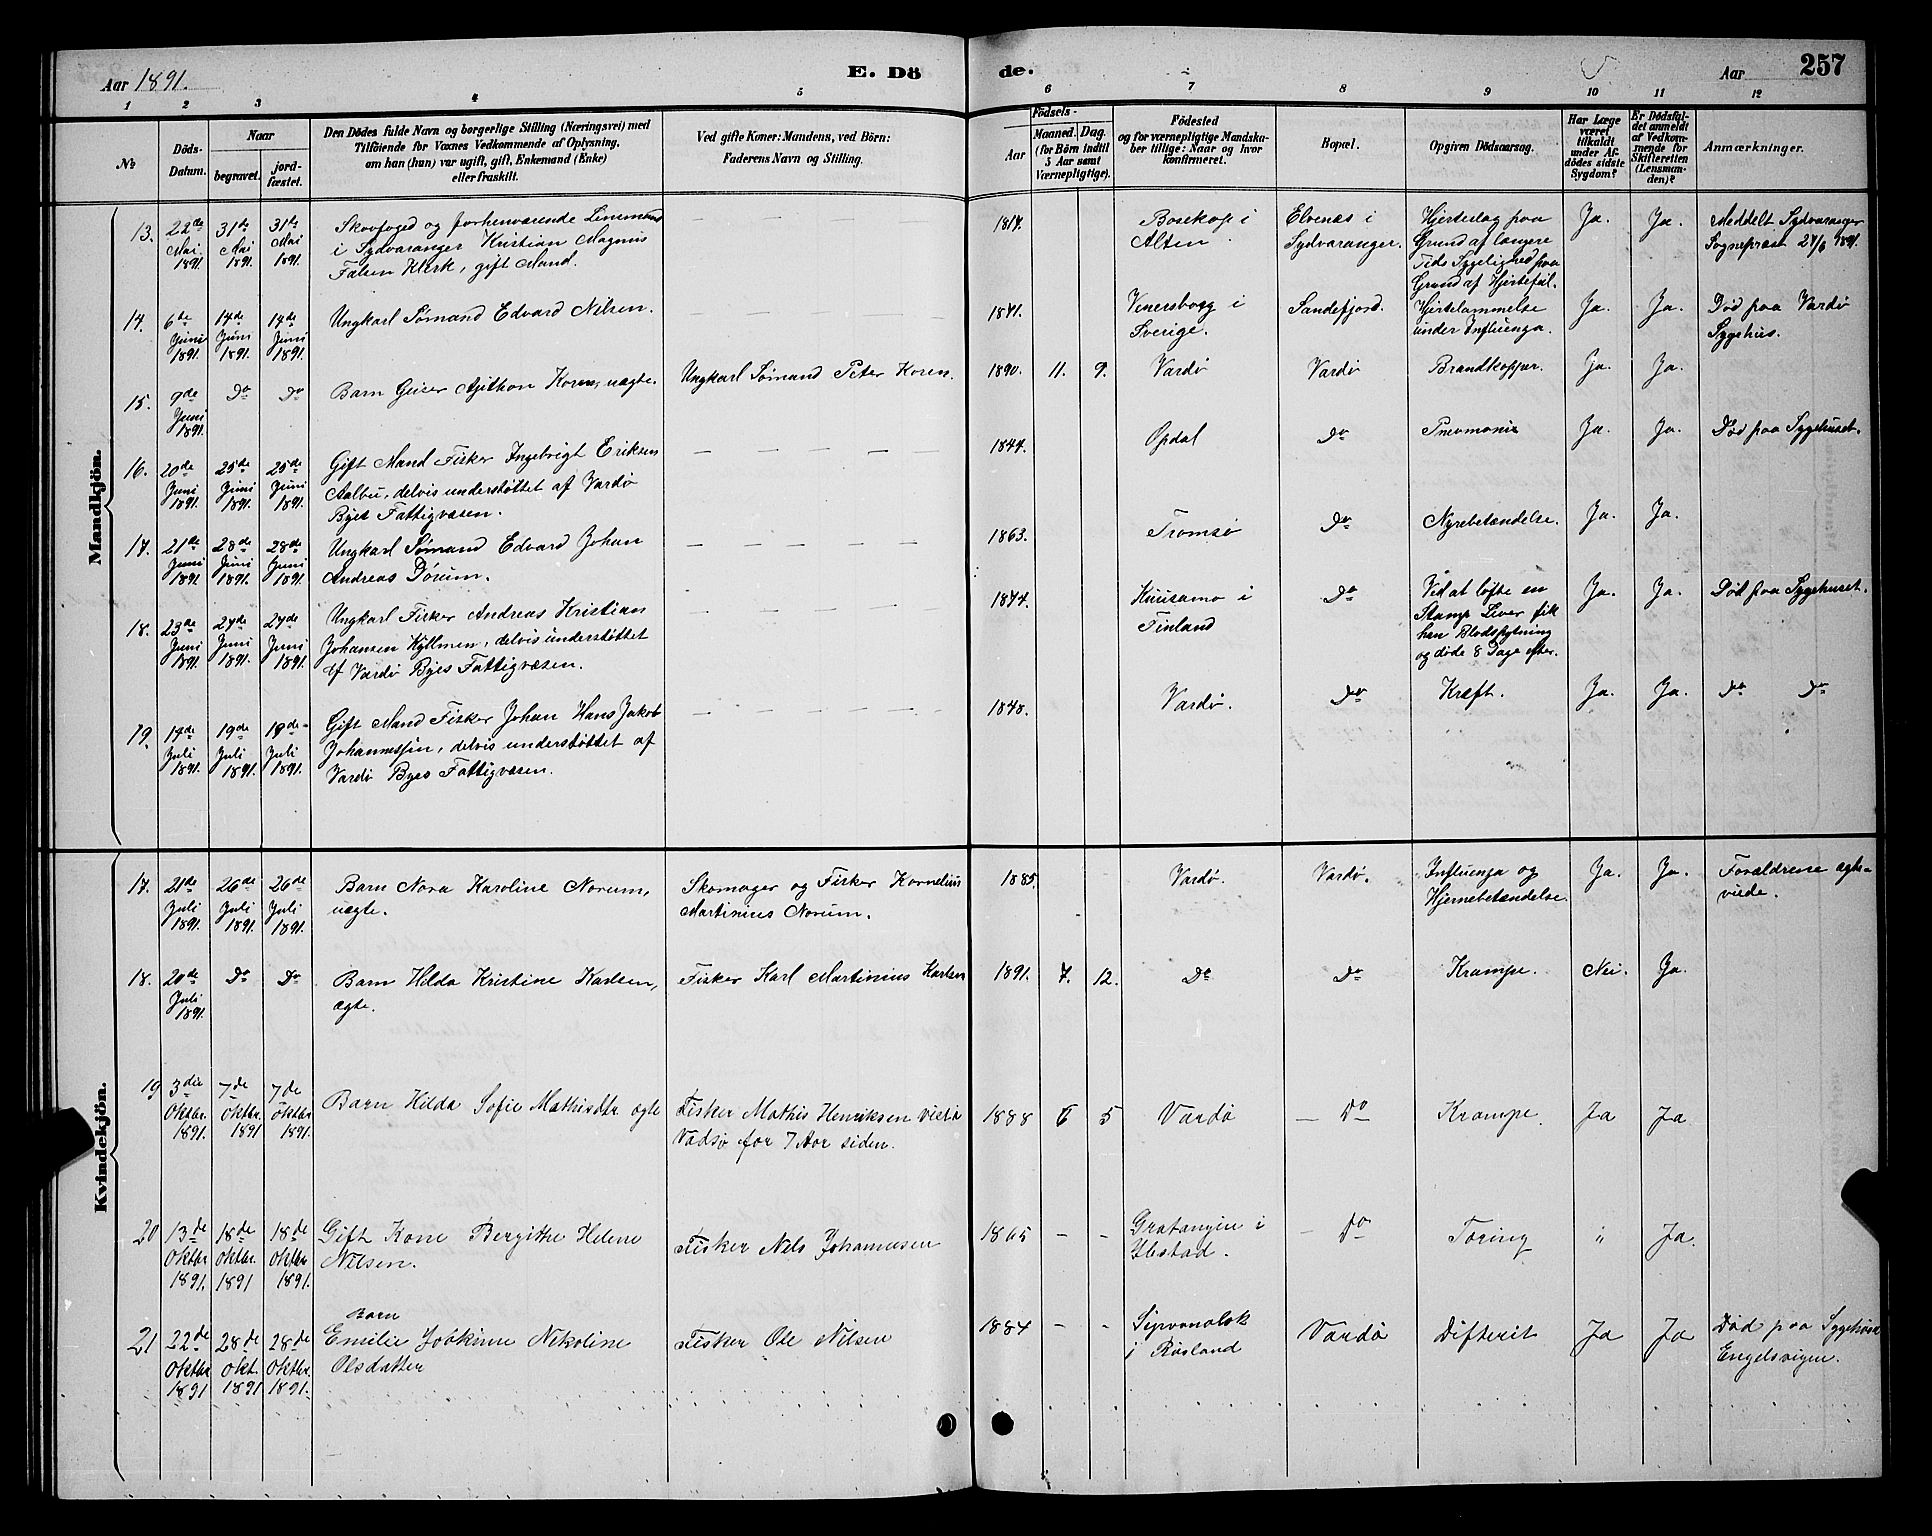 Aar 1891.
E. Dö
de.
Aar
257
1 2 3 4 5
6 7 8 9 10 11 12
No
Döds-
Datum.
Naar
begravet.
jord-
fæstet.
Den Dödes fulde Navn og borgerlige Stilling (Næringsvei) med
Tilföiende for Voxnes Vedkommende af Oplysning,
om han (hun) var ugift, gift, Enkemand (Enke)
eller fraskilt.
Ved gifte Koner: Mandens, ved Börn:
Faderens Navn og Stilling.
Födsels-
Aar
Maaned. Dag.
(for Börn indtil
5 Aar samt
Værnepligtige).
Födested
og for værnepligtige Mandska-
ber tillige: Naar og hvor
konfirmeret.
Bopæl.
Opgiven Dödsaarsag.
Har Læge
været
tilkaldt
under Af-
dödes sidste
Sygdom?
Er Dödsfal-
det anmeldt
af Vedkom-
mende for
Skifteretten
(Lensman-
den)?
Anmærkninger.
Mandkjön.
13.
22de
Mai
1891.
31te
Mai
1891.
31te
Mai
1891.
Skovfoged og forhenværende Lensmand
i Sydvaranger Kristian Magnus
Falsen Klerk, gift Mand.
— — — —
1817.
Bosekop i
Alten
Elvenæs i
Sydvaranger.
Hjerteslag paa
Grund af længere
Tids Sygelighed paa
Grund af Hjertefeil.
Ja.
Ja.
Meddelt Sydvaranger
Sognepræst 27/6 1891.
14.
6de
Juni
1891.
14de
Juni
1891.
14de
Juni
1891.
Ungkarl Sømand Edvard Nilsen.
— — — —
1841.
Venersborg i
Sverige.
Sandefjord.
Hjertelammelse
under Influenza.
Ja.
Ja.
Død paa Vardø
Sygehus.
15.
9de
Juni
1891.
Do
Do
Barn Geiser Koren, uægte.
Ungkarl Sømand Peter Koren.
1890.
11.
9.
Vardø
Vardø
Brandkopper.
Ja.
Ja.
16.
20de
Juni
1891.
25de
Juni
1891.
25de
Juni
1891.
Gift Mand Fisker Ingebrigt Eriksen
Aalbu, delvis understøttet af Vardø
Byes Fattigvæsen.
— — — —
1844.
Opdal
Do
Pneumonie
Ja.
Ja.
Død paa Sygehuset.
17.
21de
Juni
1891.
28de
Juni
1891.
28de
Juni
1891.
Ungkarl Sømand Edvard Johan
Andreas Dørum.
— — — —
1863.
Tromsø
Do
Nyrebetændelse.
Ja.
Ja.
18.
23de
Juni
1891.
27de
Juni
1891.
27de
Juni
1891.
Ungkarl Fisker Andreas Kristian
Johansen Kyllmen, delvis understøttet
af Vardø Byes Fattigvæsen.
— — — —
1874.
Kuusamo i
Finland
Do
Ved at løfte en
Stamp Lever fik
han Blodspytning
og døde 8 Dage efter.
Ja.
Ja.
Død paa Sygehuset.
19.
14de
Juli
1891.
19de
Juli
1891.
19de
Juli
1891.
Gift Mand Fisker Johan Hans Jakob
Johannessen, delvis understøttet af
Vardø Byes Fattigvæsen.
— — — —
1848.
Vardø.
Do
Kræft.
Ja.
Ja.
Do Do
Kvindekjön.
17.
21de
Juli
1891.
26de
Juli
1891.
26de
Juli
1891.
Barn Nora Karoline Norum,
uægte.
Skomager og Fisker Kornelius
Martinius Norum.
1885.
Vardø.
Vardø.
Influenza og
Hjernebetændelse.
Ja.
Ja.
Forældrene ægte-
viede.
18.
20de
Juli
1891.
Do
Do
Barn Hilda Kristine Karlsen,
ægte.
Fisker Karl Martinius Karlsen
1891.
7.
12.
Do
Do
Krampe.
Nei.
Ja.
19
3die
Oktbr.
1891.
7de
Oktbr.
1891
7de
Oktbr.
1891.
Barn Hilda Sofie Mathisdtr ægte
Fisker Mathis Henriksen viet i
Vadsø for 7 Aar siden.
1888
6
5
Vardø
— Do —
Krampe.
Ja
Ja
20
13de
Oktbr
1891.
18de
Oktbr.
1891
18de
Oktbr
1891.
Gift Kone Bergitte Helene
Nilsen.
Fisker Nils Johannesen
1865
—
-
Gratangen i
Ibestad.
— Do
Tæring
"
Ja.
21
22de
Oktbr
1891
28de
Okt.
1891
28de
Oktbr.
1891.
Barn
Emilie Jobkime Nikoline
Olsdatter
Fisker Ole Nilsen
1884
-
-
i Rusland
Vardø
Difterit
Ja
Ja
Død paa Sygehuset
Engelsvigen.